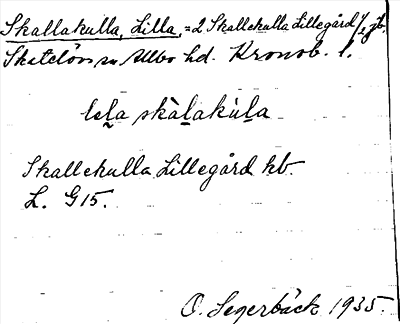 Skallakulla, Lilla, =2 Skallekulla Lillegård / e. jb.
Skatelövs sn Allbo hd. Kronob. l.
lḙla skàlakùla
Skallekulla Lillegård kb.
L. G15.
O. Segerbäck 1935.